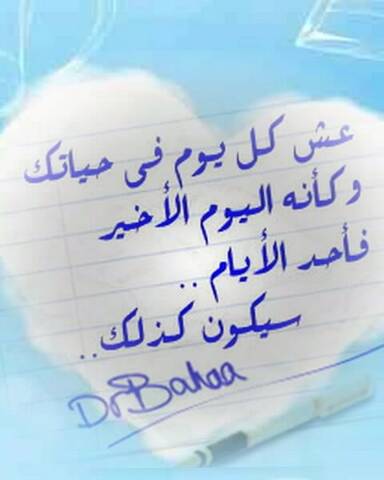 عش كل يوم في حياتك
وكأنه اليوم الأخير
فأحد الأيام ..
سيكون كذلك ..
Dr Bahaa